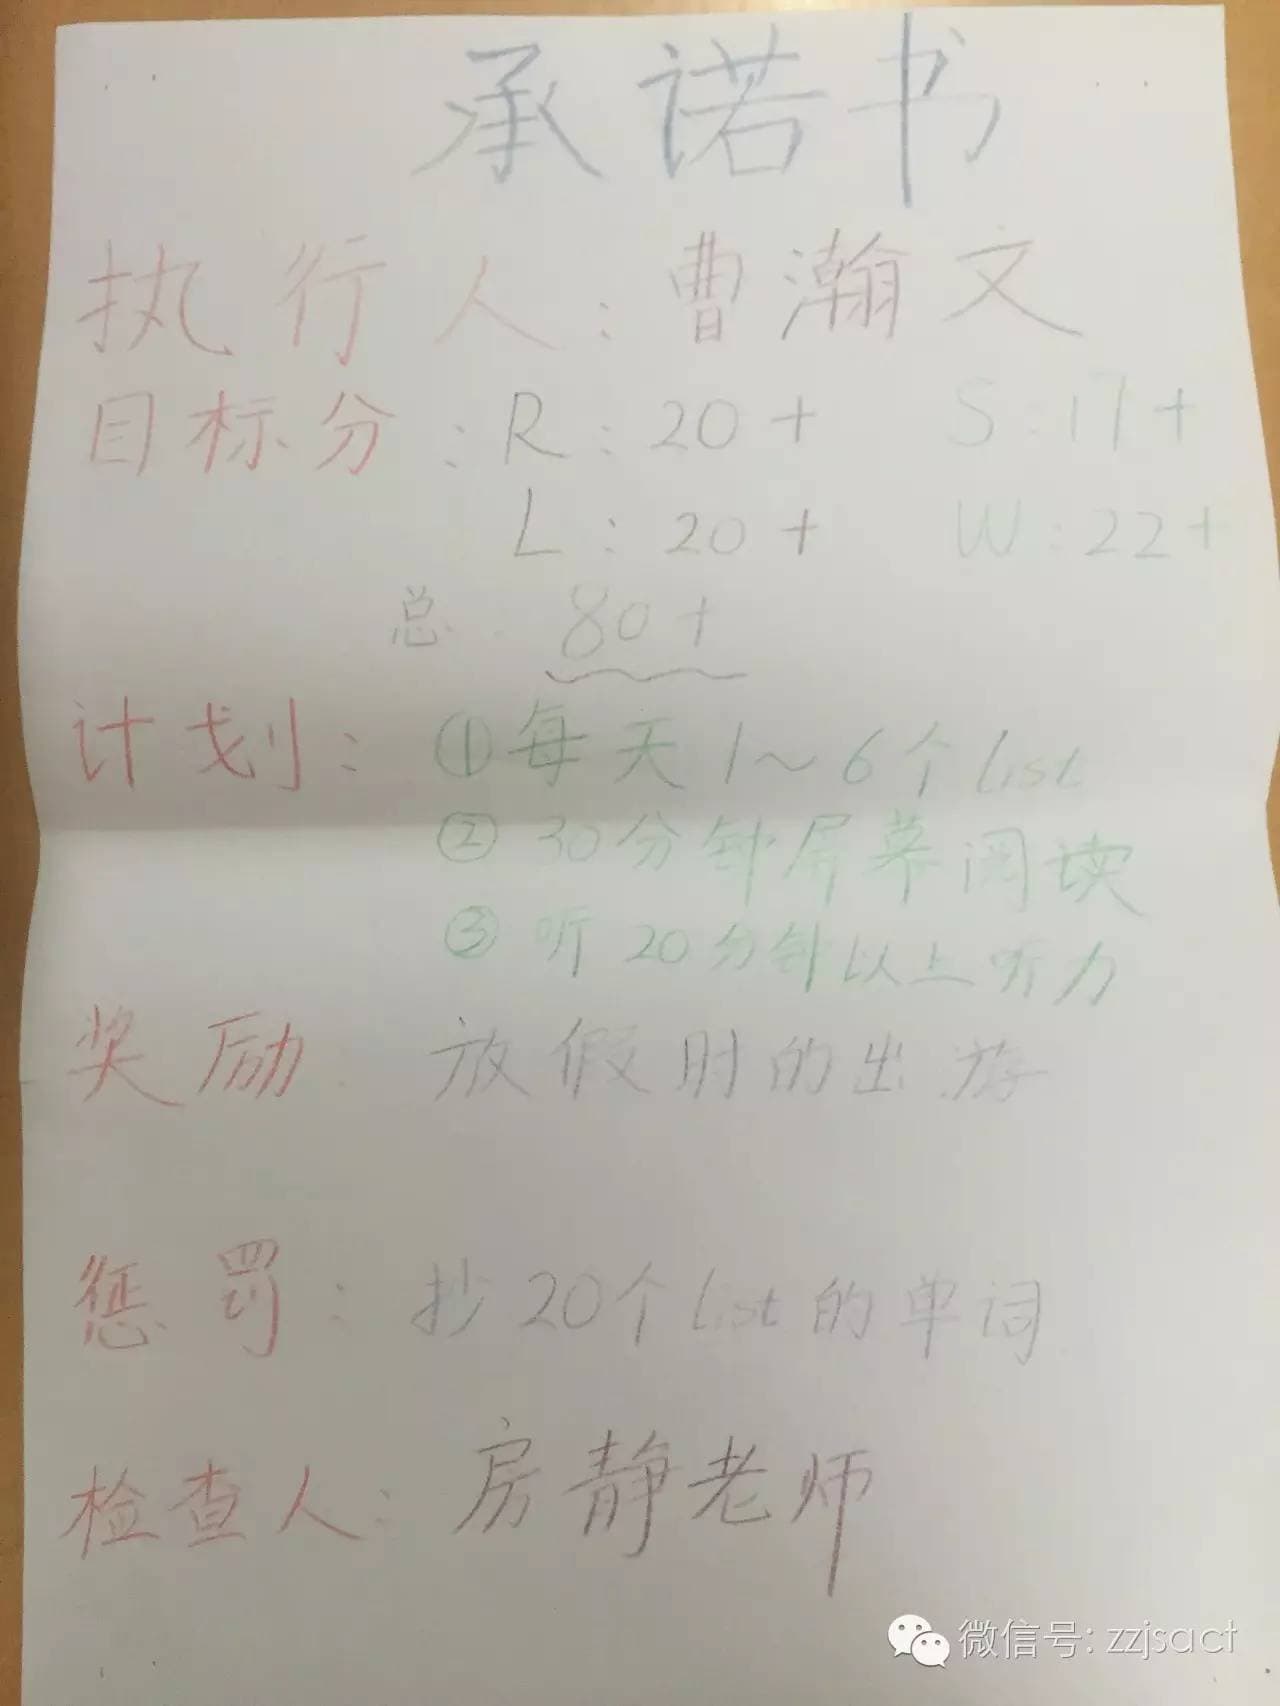 承诺书
执行人：曹瀚文
目标分：R：20+ S：17+
L：20+ W：22+
总：80+
计划：①每天1~6个list
②30分钟屏幕阅读
③听20分钟以上听力
奖励：放假时的出游
惩罚：抄20个list的单词
检查人：房静老师
微信号: zzjsact